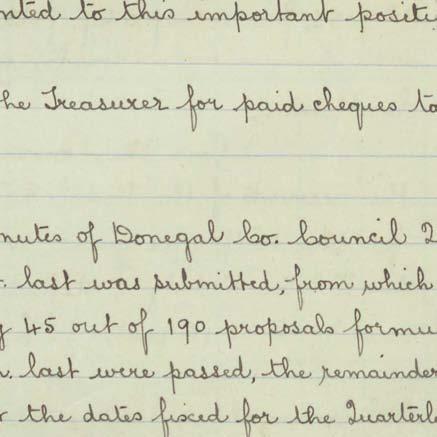 nted to this important positi
he Treasurer for paid cheques to
nutes of Donegal Co. Council Q
. last was submitted, from which
g 45 out of 190 proposals formu
. last were passed, the remainder
r the dates fixed for the Quarterl